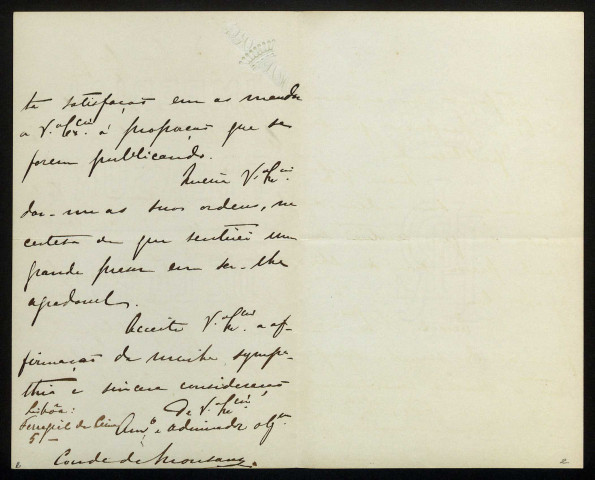 te satisfação em as mandar
a V.ª Ex.cia á proporção que se
forem publicando.
Queira V.ª Ex.cia
dar-me as suas ordens, na
certesa de que sentirei um
grande praser em ser-lhe
agradavel.
Acceite V.ª Ex.cia a af-
firmação da minha sympa-
thia e sincera consideração
De V.ª Ex.cia
Lisbôa:
Am.º e admirador obg.mo
5 —
Conde de Monsaraz.
2
2